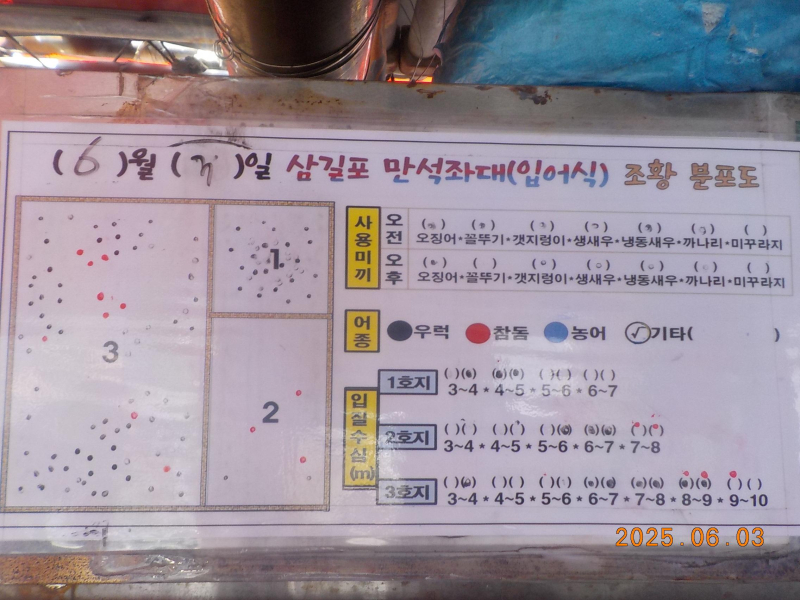 (6)월 ( )일 삼길포 만석좌대(입어식) 조황 분포도
사용미끼
오전
( ) ( ) ( ) ( ) ( ) ( ) ( )
오징어•꼴뚜기•갯지렁이•생새우•냉동새우•까나리•미꾸라지
오후
( ) ( ) ( ) ( ) ( ) ( ) ( )
오징어•꼴뚜기•갯지렁이•생새우•냉동새우•까나리•미꾸라지
어종 우럭 참돔 농어 √기타( )
입질수심(m)
1호지
( )( ) ( )( ) ( )( ) ( )( )
3~4 * 4~5 * 5~6 * 6~7
2호지
( )( ) ( )( ) ( )( ) ( )( ) ( )( )
3~4 * 4~5 * 5~6 * 6~7 * 7~8
3호지
( )( ) ( )( ) ( )( ) ( )( ) ( )( ) ( )( ) ( )( )
3~4 * 4~5 * 5~6 * 6~7 * 7~8 * 8~9 * 9~10
1
3
2
2025.06.03